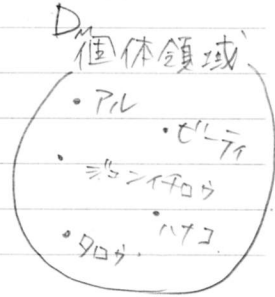 D_M
個体領域
・アル
・ビーティ
・ジョンイチロウ
・ハナコ
・タロウ.